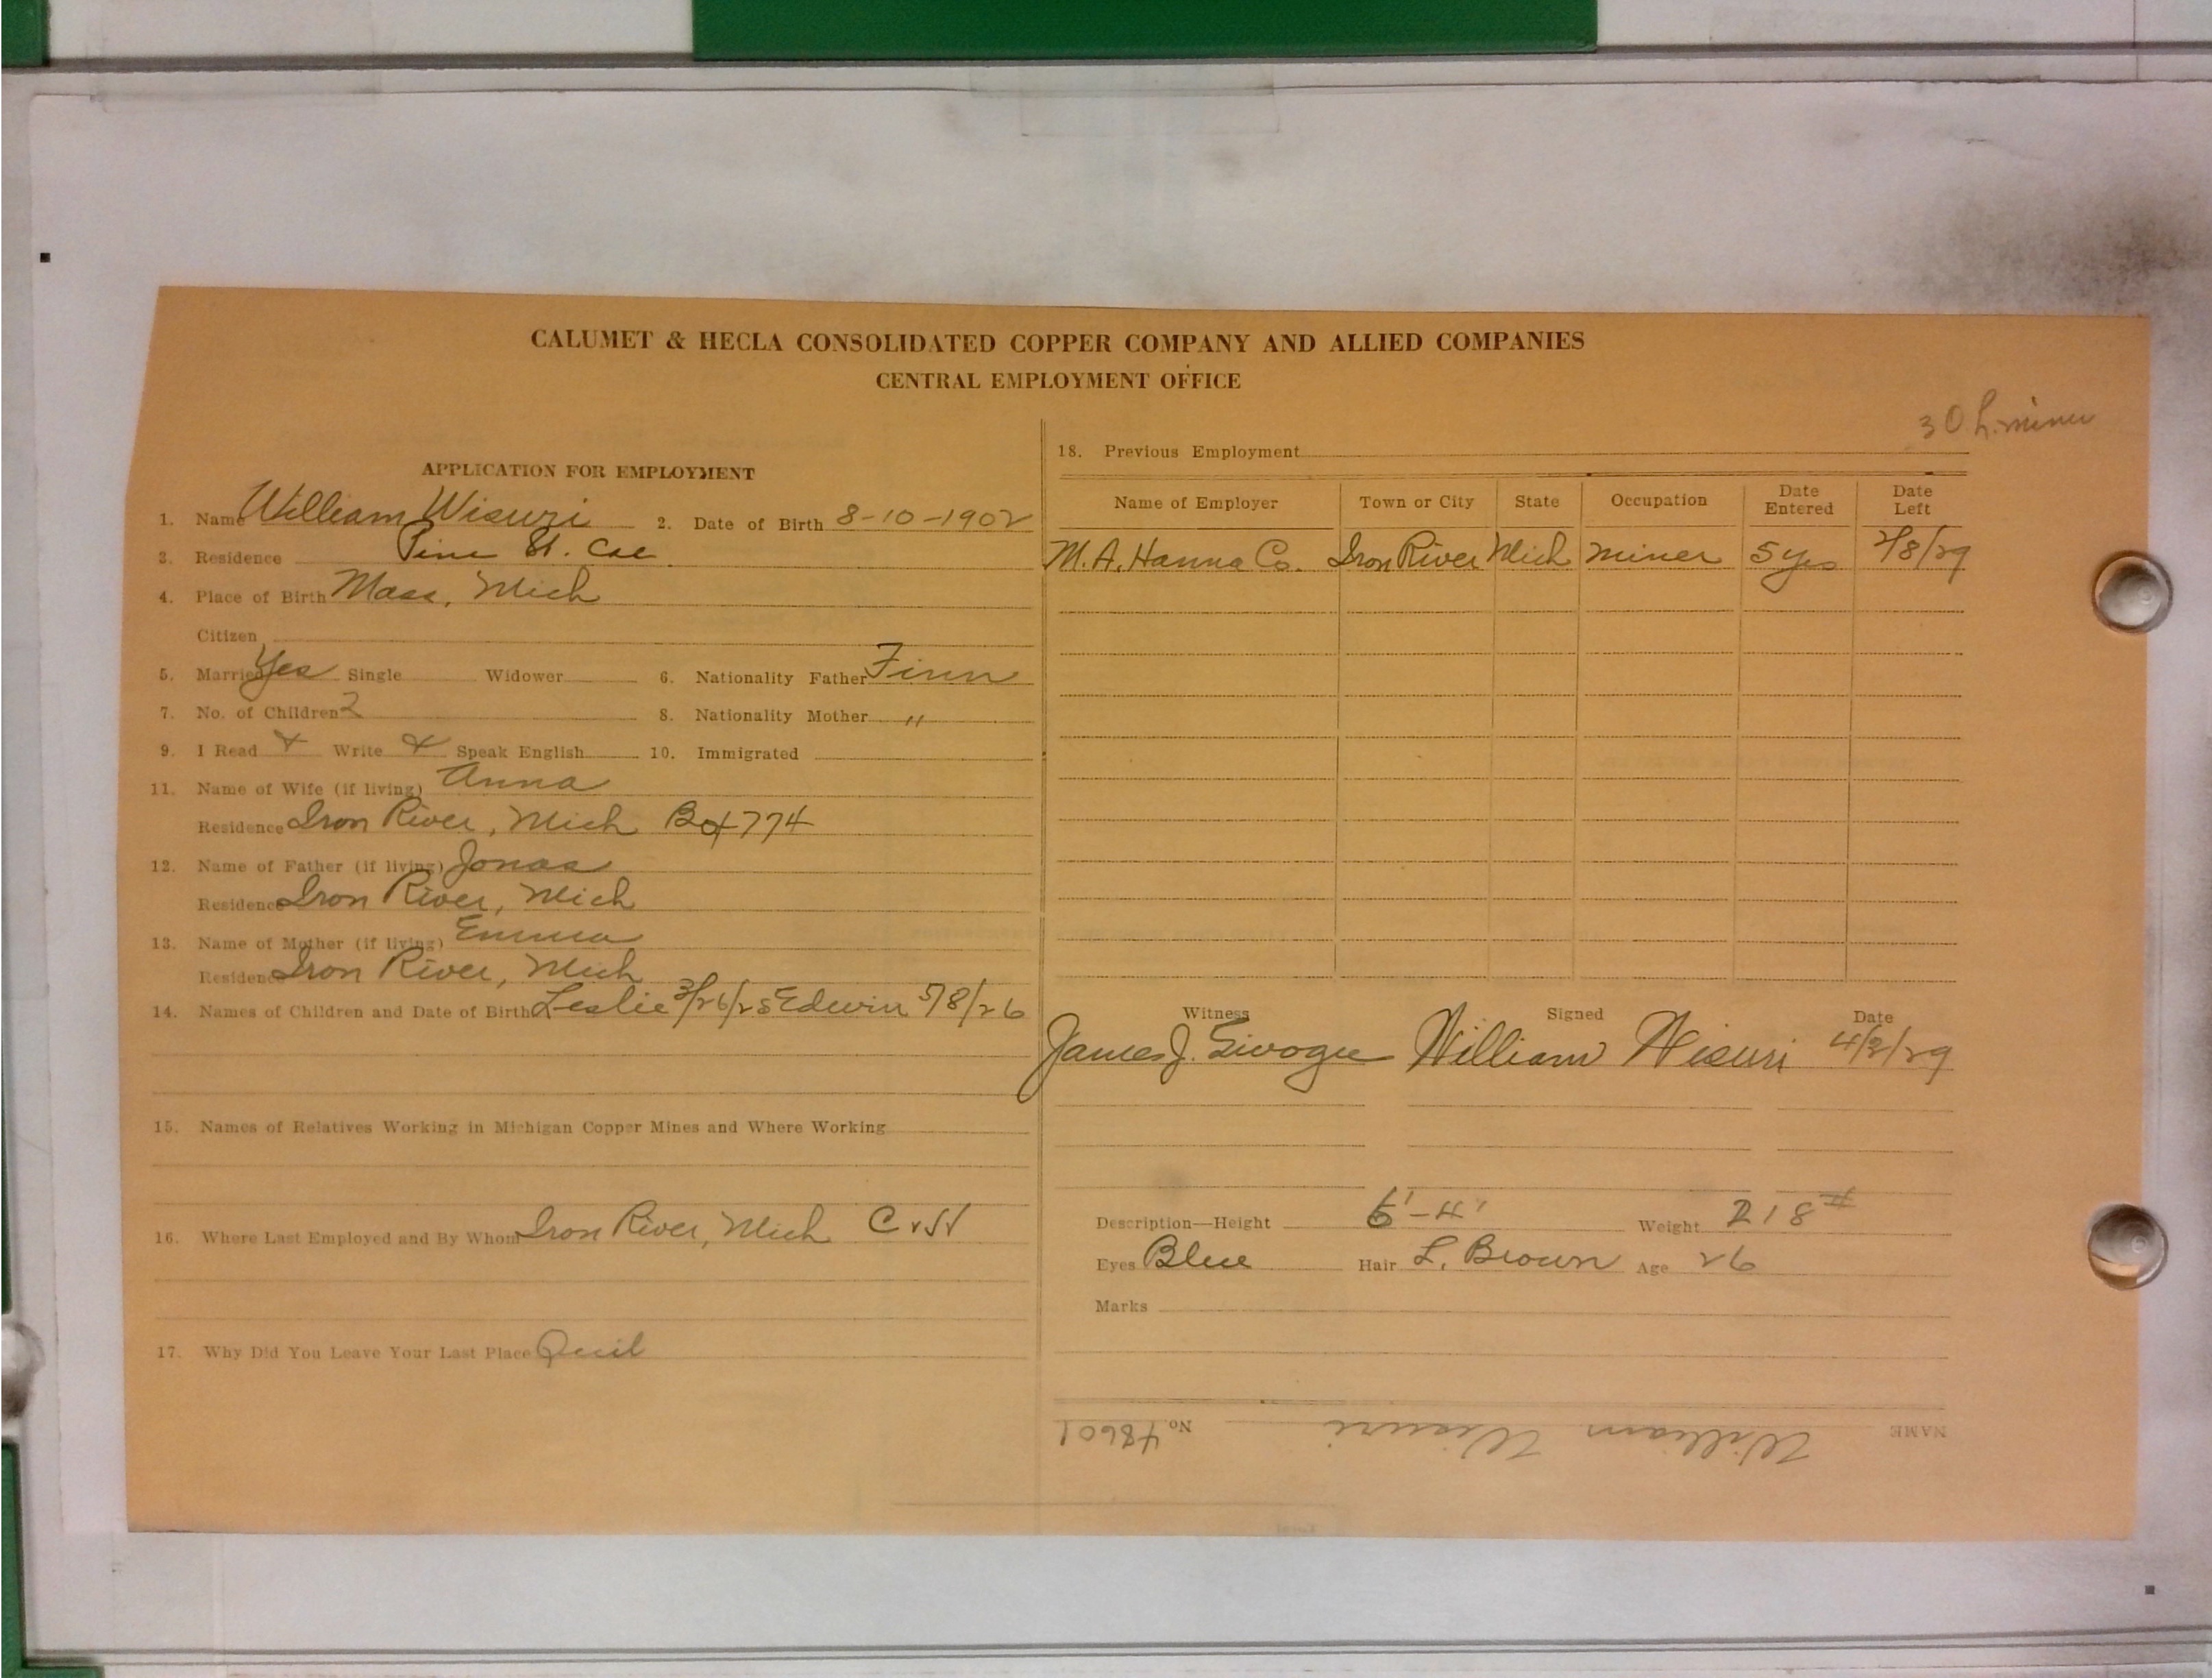 CALUMET & HECLA CONSOLIDATED COPPER COMPANY AND ALLIED COMPANIES
CENTRAL EMPLOYMENT OFFICE
APPLICATION FOR EMPLOYMENT
1. Name William Wisuri 2. Date of Birth 8-10-1902
3. Residence Pine St. Cal
4. Place of Birth Mass, Mich
Citizen
5. Married Yes Single Widower 6. Nationality Father Finn
7. No. of Children 2 8. Nationality Mother "
9. I Read x Write x Speak English 10. Immigrated
11. Name of Wife (if living) Anna
Residence Iron River, Mich Box 774
12. Name of Father (if living) Jonas
Residence Iron River, Mich
13. Name of Mother (if living) Emma
Residence Iron River, Mich
14. Names of Children and Date of Birth Leslie 3/26/25 Edwin 5/8/26
15. Names of Relatives Working in Michigan Copper Mines and Where Working
16. Where Last Employed and By Whom Iron River, Mich C & H
17. Why Did You Leave Your Last Place Quit
30 miner
18. Previous Employment
Name of Employer Town or City State Occupation Date Entered Date Left
M. A. Hanna Co. Iron River Mich miner 5 yrs 2/8/29
Witness Signed Date
James J. William Wisuri 4/2/29
Description—Height 6'-4' Weight 218#
Eyes Blue Hair L. Brown Age 26
Marks
NAME William Wisuri No. 48601